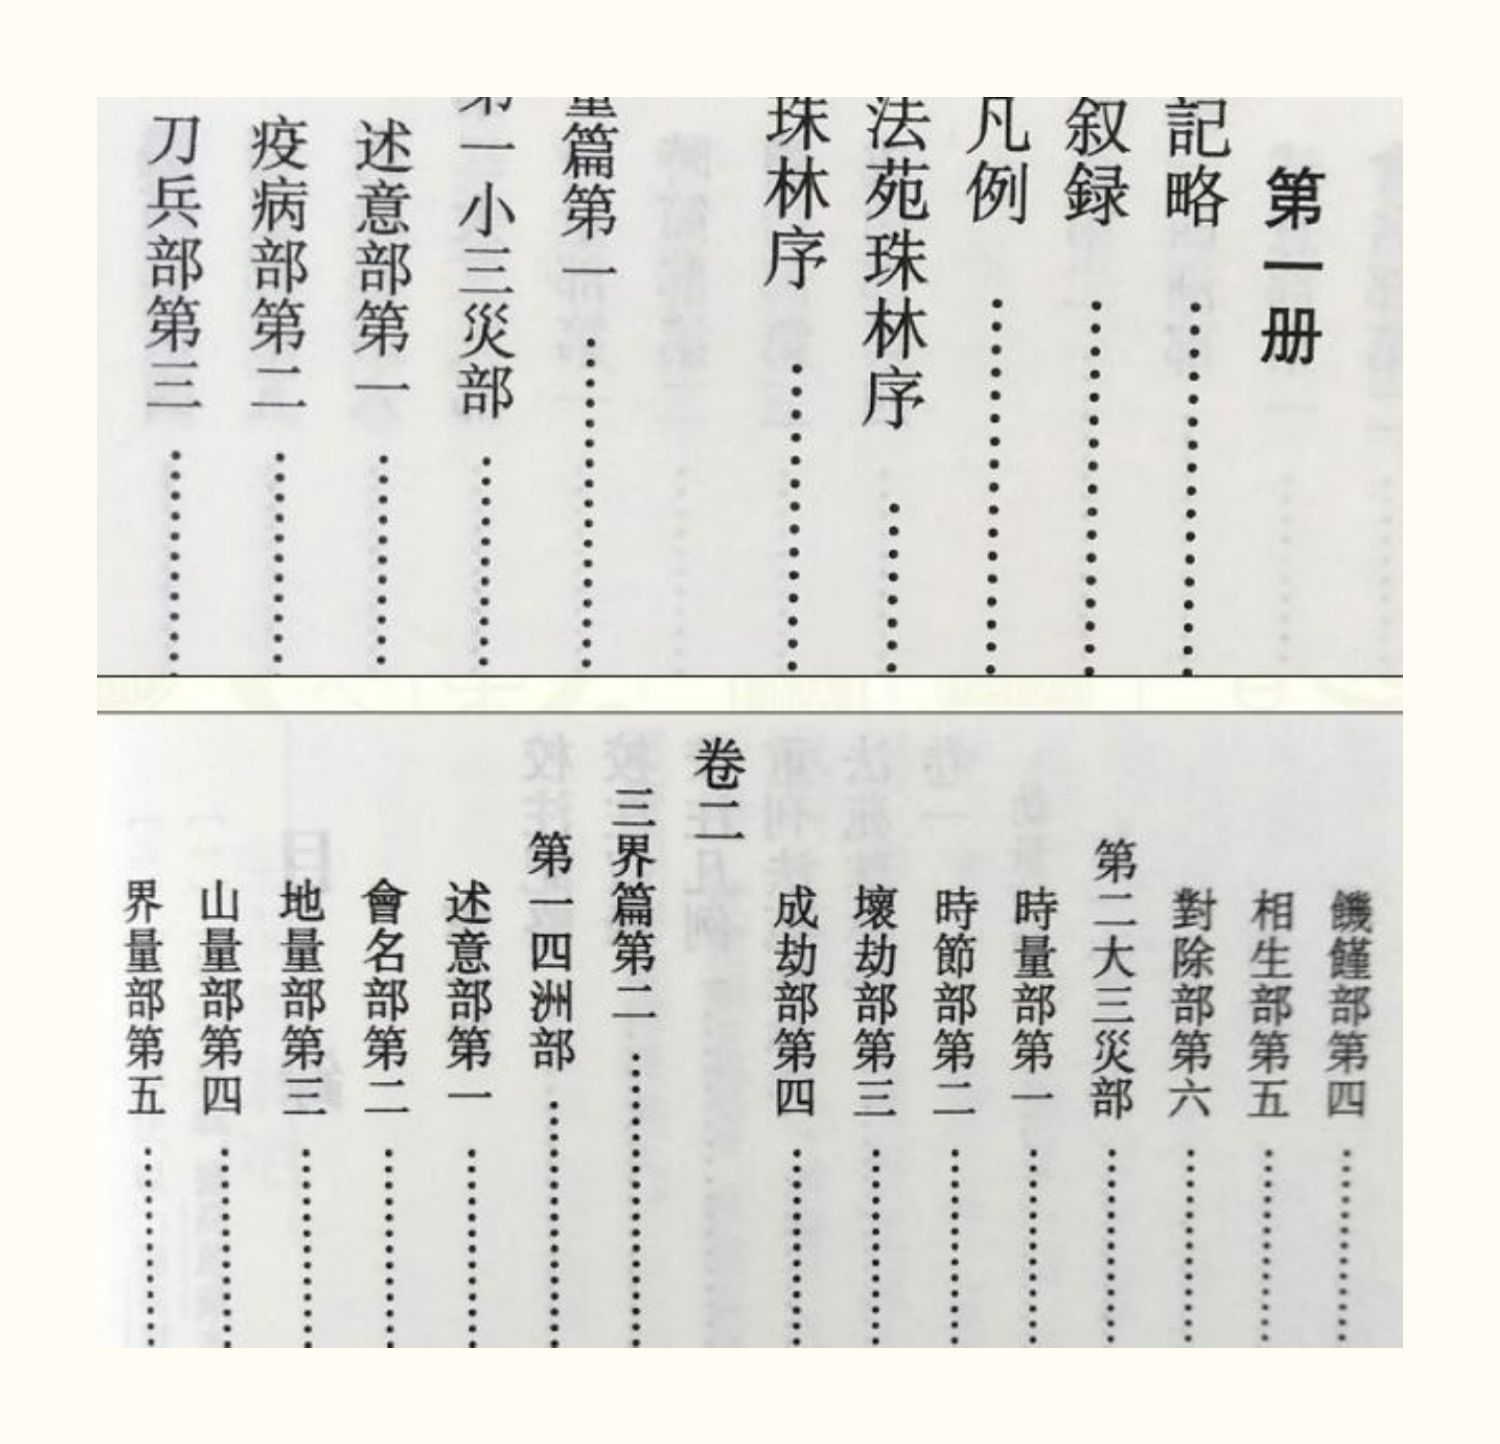 第一册
記略
叙録
凡例
法苑珠林序
珠林序
篇第一
第一小三災部
述意部第一
疫病部第二
刀兵部第三
饑饉部第四
相生部第五
對除部第六
第二大三災部
時量部第一
時節部第二
壞劫部第三
成劫部第四
卷二
三界篇第二
第一四洲部
述意部第一
會名部第二
地量部第三
山量部第四
界量部第五